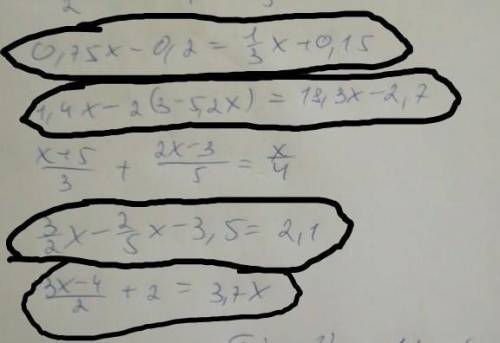 0,75x - 0,2 = 1/3 x + 0,15
1,4x - 2(3 - 5,2x) = 18,3x - 2,7
(x+5)/3 + (2x-3)/5 = x/4
3/2 x - 2/5 x - 3,5 = 2,1
(3x-4)/2 + 2 = 3,7x